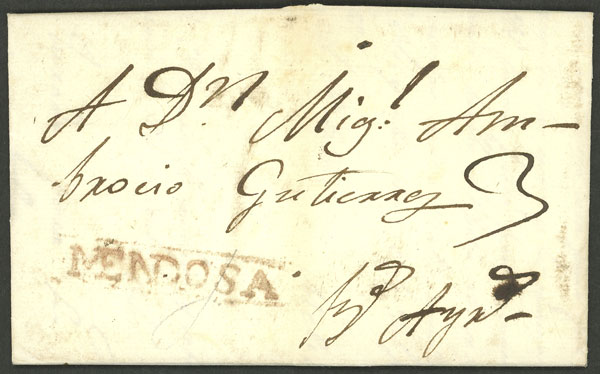 A Dn Migl Am-
brocio Gutierrez 3
MENDOSA
Ayrs